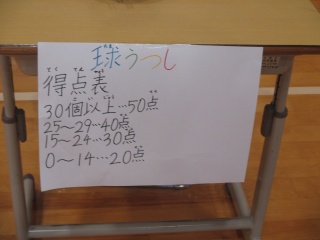 球うつし
得点表
30個以上…50点
25〜29…40点
15〜24…30点
0〜14…20点